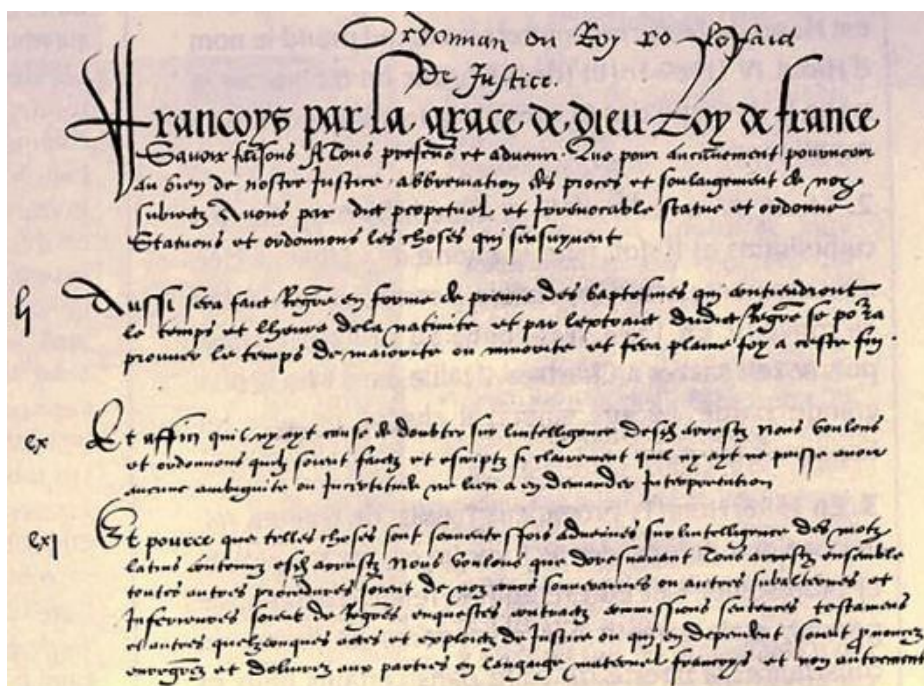 Ordonnan du Roy
De Justice.
Francoys par la grace de dieu Roy de france
Savoir faisons A Tous presens et advenir. Que pour aucunement pourveoir
au bien de nostre Justice. abbreviation des proces et soulaigement de noz
subiectz Avons par edict perpetuel et Irrevocable statue et ordonne
Statuons et ordonnons les choses qui sensuyvent
lj
Aussi sera faict Regre en forme de preuve des baptesmes qui contiendront
le temps et lheure dela nativite et par lextraict dudict Regre se porra
prouver le temps de maiorite ou minorite et fera plaine foy a ceste fin.
cx
Et affin quil ny ayt cause de doubter sur lintelligence desdz arrestz Nous voulons
et ordonnons quilz soient faictz et escriptz si clairement quil ny ayt ne puisse avoir
aucune ambiguite ou Incertitude ne lieu a en demander Interpretation
cxj
Et pource que telles choses sont souventesfois advenues sur lintelligence des motz
latins contenuz esdz arrestz Nous voulons que doresnavant Tous arrestz ensemble
toutes autres procedures soient de noz cours souveraines ou autres subalternes et
Inferieures soient de Regres enquestes contractz commissions sentences testamens
et autres quelzconques actes et exploictz de Justice ou qui en dependent soient pnoncez
enregrez et delivrez aux parties en langaige maternel francoys et non autrement